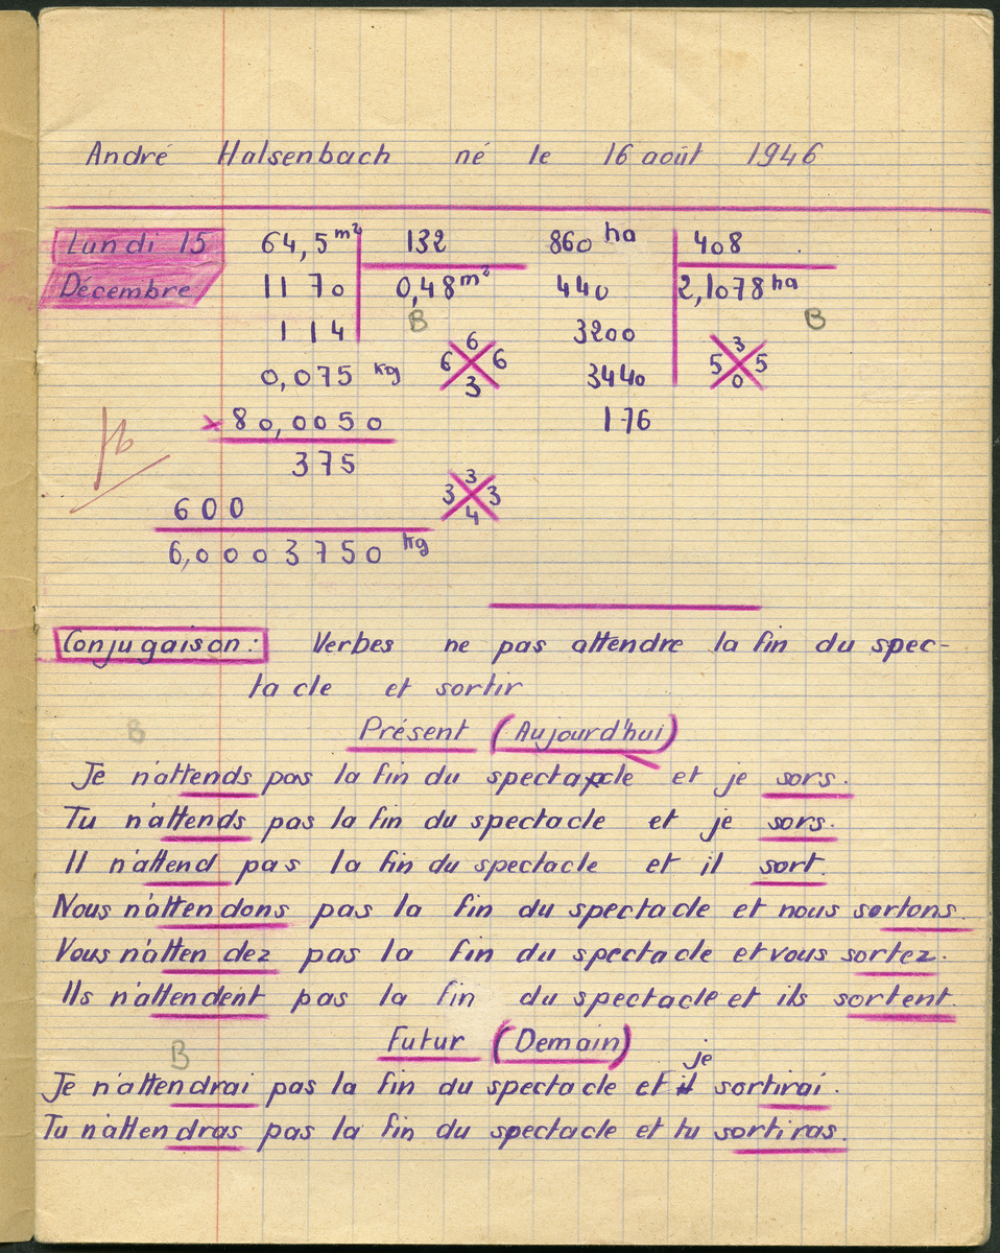 André Halsenbach né le 16 août 1946
Lundi 15 64,5m² 132 860 ha 408
Décembre 1170 0,48m² 440 2,1078ha
114 B 3200 B
6 6 6 3
3 5 5 0
0,075 kg 3440
× 80,0050 176
375
3 3 3 4
600
6,0003750 kg
Conjugaison: Verbes ne pas attendre la fin du spec-
tacle et sortir
B Présent (Aujourd'hui)
Je n'attends pas la fin du spectacle et je sors.
Tu n'attends pas la fin du spectacle et je sors.
Il n'attend pas la fin du spectacle et il sort.
Nous n'attendons pas la fin du spectacle et nous sortons.
Vous n'attendez pas la fin du spectacle et vous sortez.
Ils n'attendent pas la fin du spectacle et ils sortent.
B Futur (Demain)
je
Je n'attendrai pas la fin du spectacle et il sortirai.
Tu n'attendras pas la fin du spectacle et tu sortiras.